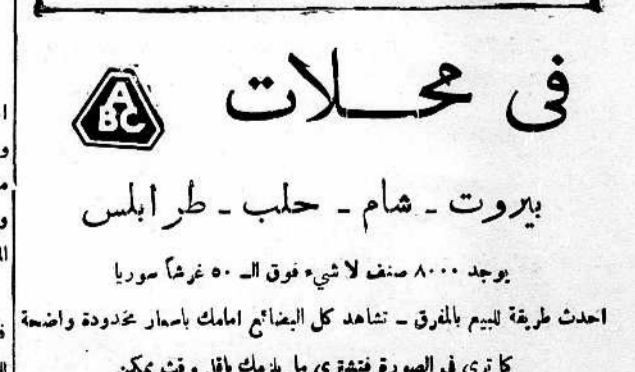 فى محلات
ABC
بيروت - شام - حلب - طرابلس
يوجد ٨٠٠٠ صنف لا شيء فوق الـ ٥٠ غرشاً سوريا
احدث طريقة للبيع بالمفرق - تشاهد كل البضائع امامك باسعار محدودة واضحة
كما ترى فى الصورة فتشترى ما يلزمك باقل وقت ممكن